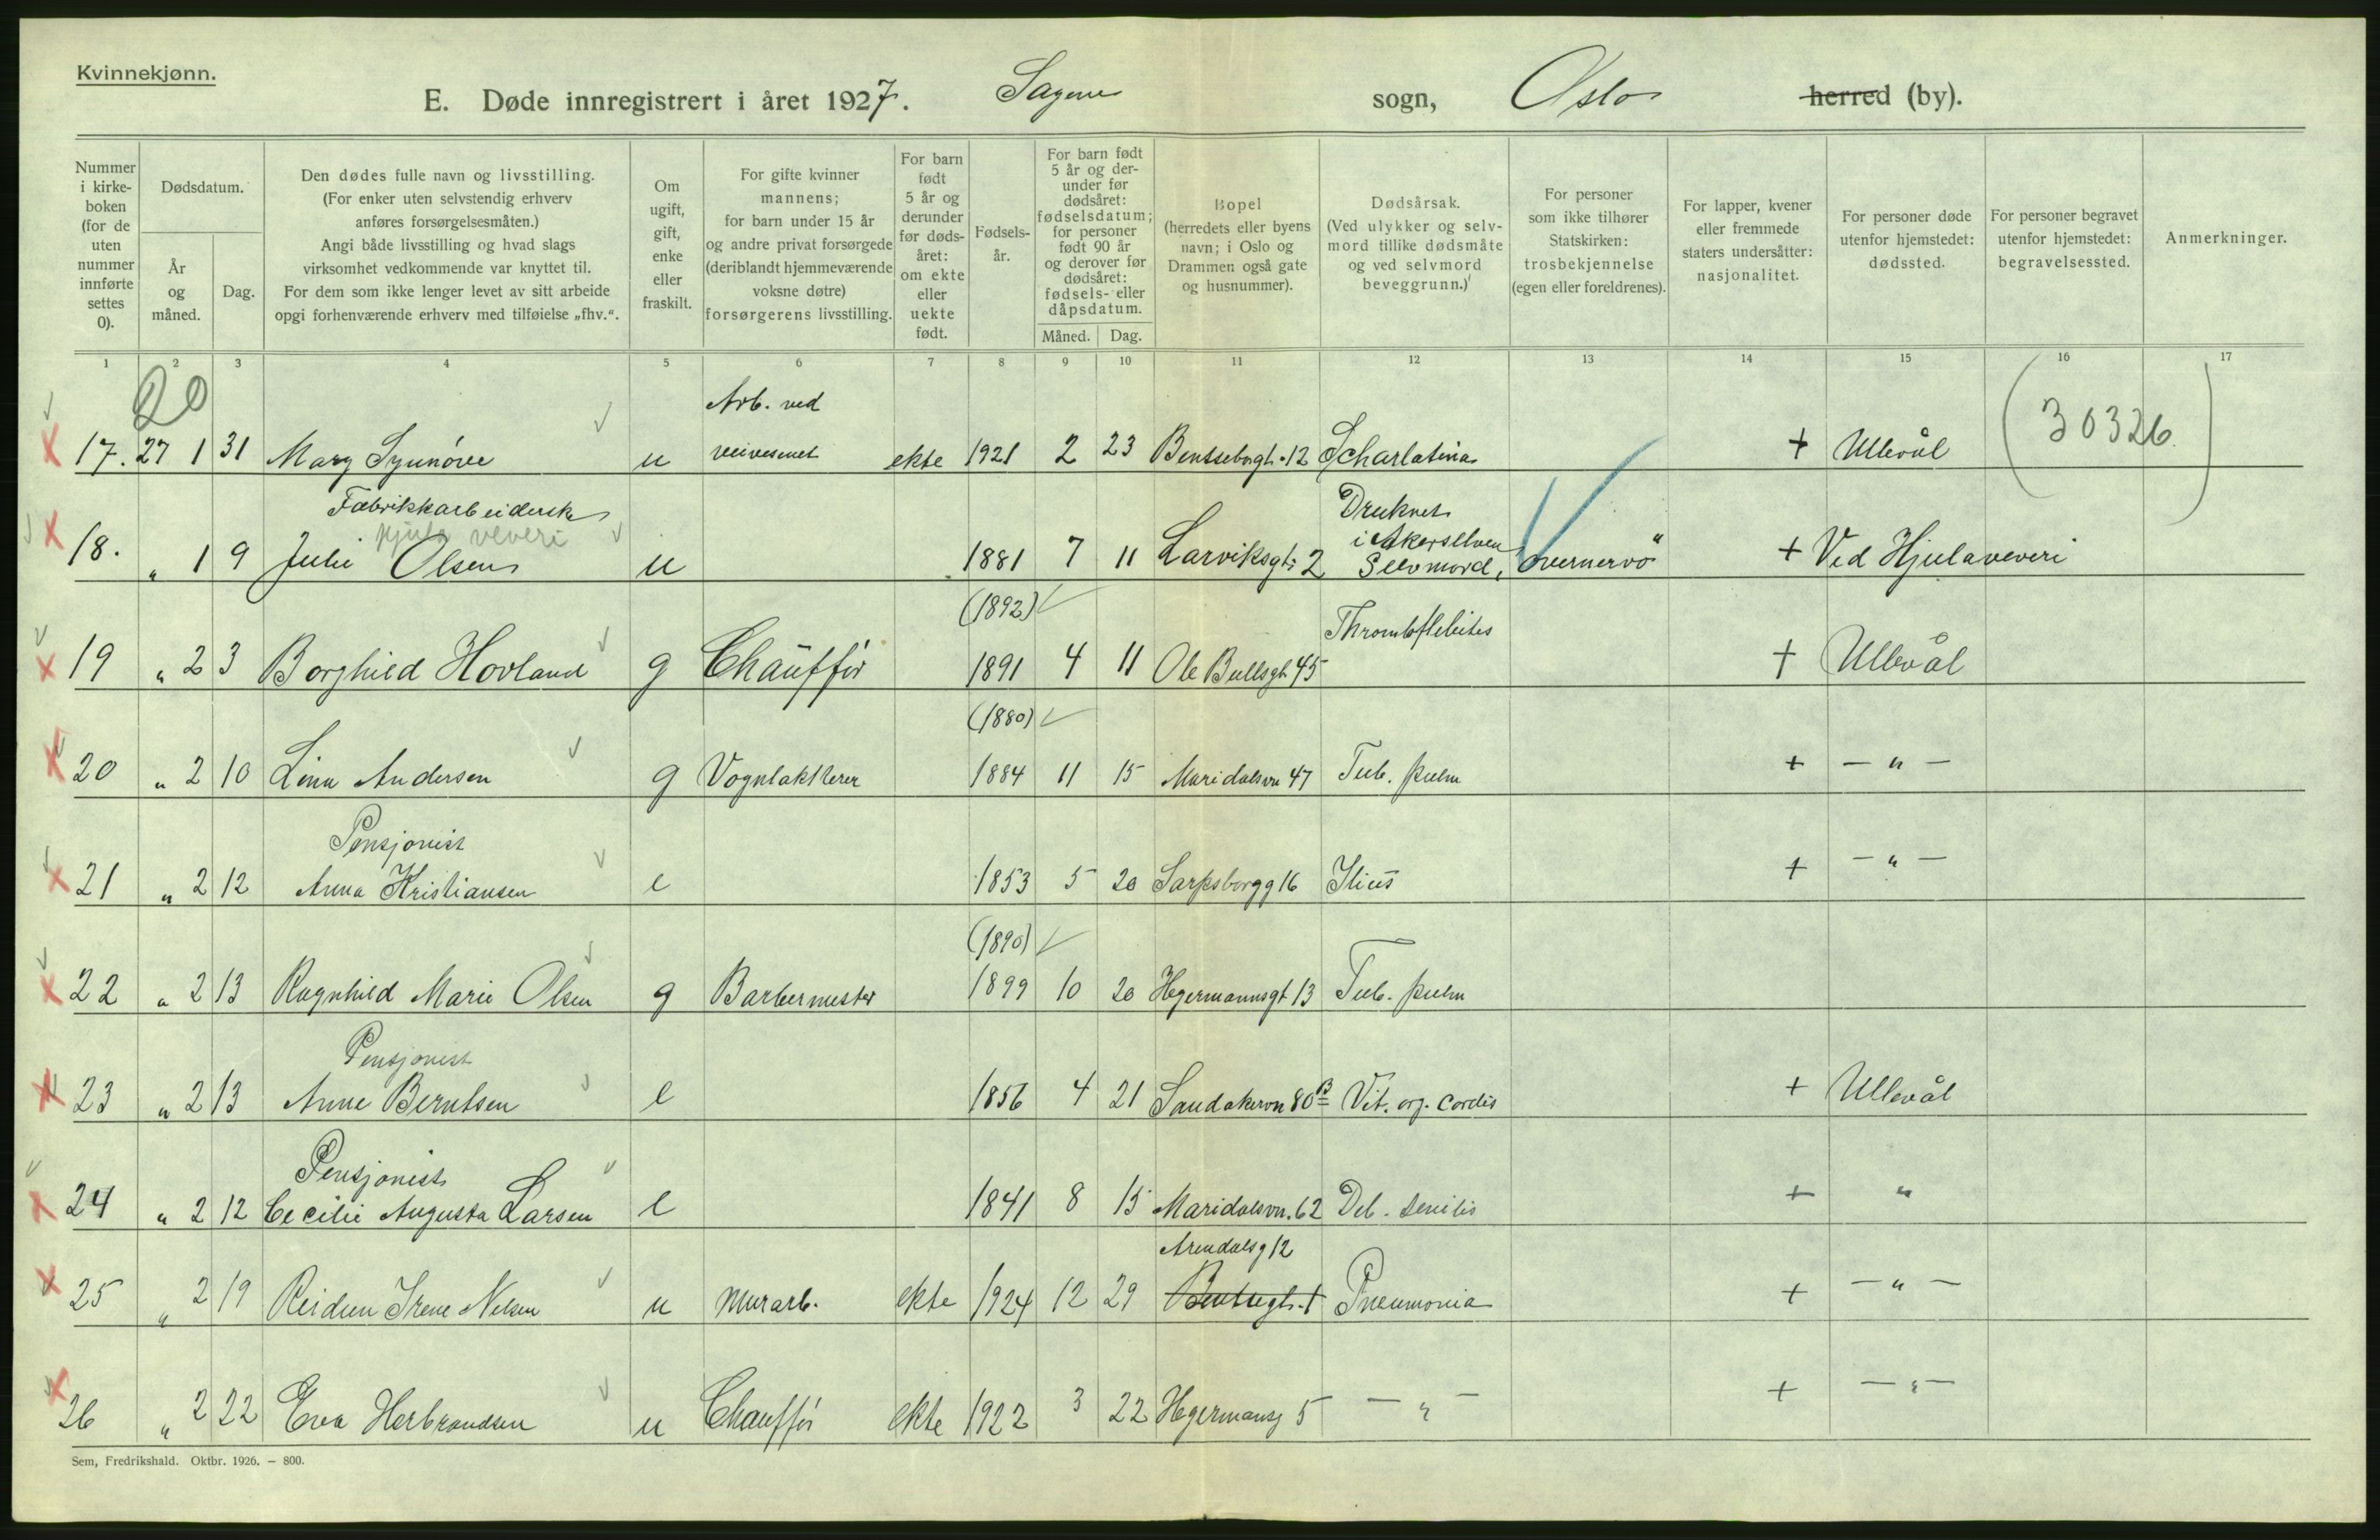 Kvinnekjønn.
E. Døde innregistrert i året 1927. Sagene sogn, Oslo herred (by).
Nummer i kirkeboken (for de uten nummer innførte settes 0).
Dødsdatum.
År og måned.
Dag.
Den dødes fulle navn og livsstilling.
(For enker uten selvstendig erhverv
anføres forsørgelsesmåten.)
Angi både livsstilling og hvad slags
virksomhet vedkommende var knyttet til.
For dem som ikke lenger levet av sitt arbeide
opgi forhenværende erhverv med tilføielse „fhv.“.
Om ugift, gift, enke eller fraskilt.
For gifte kvinner
mannens;
for barn under 15 år
og andre privat forsørgede
(deriblandt hjemmeværende
voksne døtre)
forsørgerens livsstilling.
For barn født 5 år og derunder før dødsåret: om ekte eller uekte født.
Fødselsår.
For barn født 5 år og derunder før dødsåret: fødselsdatum; for personer født 90 år og derover før dødsåret: fødsels- eller dåpsdatum.
Måned. Dag.
Bopel
(herredets eller byens
navn; i Oslo og
Drammen også gate
og husnummer).
Dødsårsak.
(Ved ulykker og selvmord tillike dødsmåte
og ved selvmord
beveggrunn.)
For personer
som ikke tilhører
Statskirken:
trosbekjennelse
(egen eller foreldrenes).
For lapper, kvener
eller fremmede
staters undersåtter:
nasjonalitet.
For personer døde
utenfor hjemstedet:
dødssted.
For personer begravet
utenfor hjemstedet:
begravelsessted.
Anmerkninger.
1 2 3 4 5 6 7 8 9 10 11 12 13 14 15 16 17
20
(30326)
Arb. ved
17. 27 1 31 Mary Synnöve u veivesenet ekte 1921 2 23 Bentsebrgt. 12 Scharlatina + Ullevål
Fabrikkarbeiderske Druknet
hjula veveri i Akerselven
18. " 1 9 Julie Olsen u 1881 7 11 Larviksgt. 2 Selvmord, overnervö" + Ved Hjulaveveri
(1892)
Thrombflebites
19 " 2 3 Borghild Hovland g Chaufför 1891 4 11 Ole Bullsgt 45 + Ullevål
(1880)
20 " 2 10 Lina Andersen g Vognlakkerer 1884 11 15 Maridalsvn 47 Tub. pulm + — " —
Pensjonist
21 " 2 12 Anna Kristiansen e 1853 5 20 Sarpsborgg 16 Ilius + — " —
(1890)
22 " 2 13 Ragnhild Marie Olsen g Barbermester 1899 10 20 Hegermannsgt 13 Tub. pulm
Pensjonist
23 " 2 13 Anne Berntsen e 1856 4 21 Sandakervn 80 B Vit. org. cordis + Ullevål
Pensjonist
24 " 2 12 Cecilie Augusta Larsen e 1841 8 15 Maridalsvn. 62 Deb. senilis + "
Arendalsg 12
25 " 2 19 Reidun Irene Nilsen u Murarb. ekte 1924 12 29 Bentsegt. 1 Pneumonia + — " —
26 " 2 22 Eva Herbrandsen u Chaufför ekte 1922 3 22 Hegermansg 5 — " — + — " —
Sem, Fredrikshald. Oktbr. 1926. – 800.